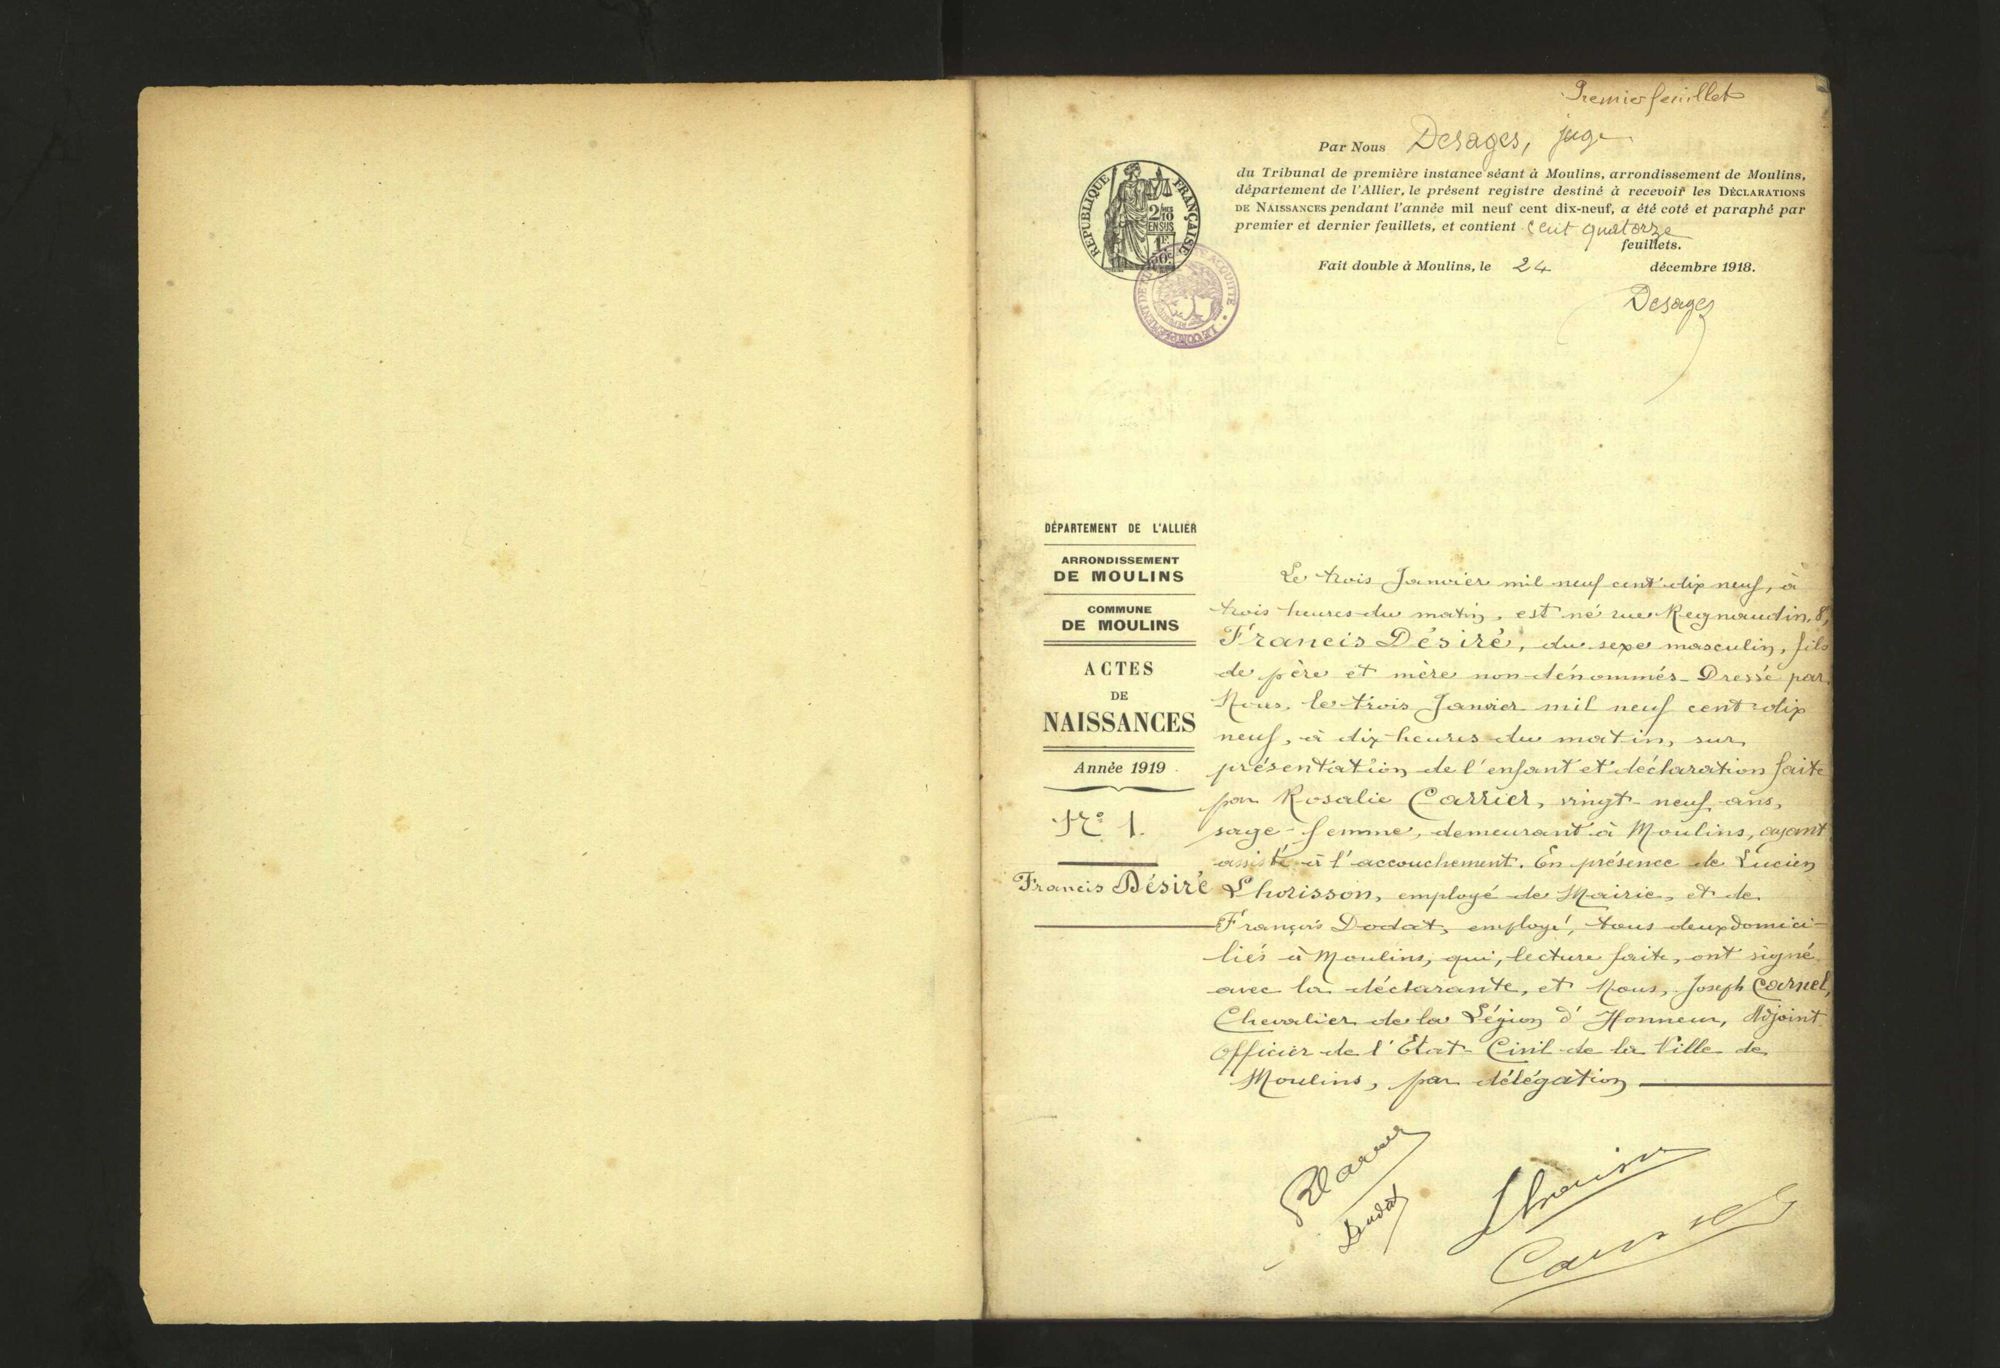 Premier feuillet
Par Nous Desages, juge
du Tribunal de première instance séant à Moulins, arrondissement de Moulins,
département de l'Allier, le présent registre destiné à recevoir les DÉCLARATIONS
DE NAISSANCES pendant l'année mil neuf cent dix-neuf, a été coté et paraphé par
premier et dernier feuillets, et contient cent quatorze
feuillets.
Fait double à Moulins, le 24 décembre 1918.
Desages
RÉPUBLIQUE FRANÇAISE
2/10
EN SUS
1F
50c
DÉPARTEMENT DE L'ALLIER
ARRONDISSEMENT
DE MOULINS
COMMUNE
DE MOULINS
ACTES
DE
NAISSANCES
Année 1919
No 1.
Francis Désiré
Le trois Janvier mil neuf cent dix neuf, à
trois heures du matin, est né rue Regnaudin, 8,
Francis Désiré, du sexe masculin, fils
de père et mère non dénommés - Dressé par
Nous, le trois Janvier mil neuf cent dix
neuf, à dix heures du matin, sur
présentation de l'enfant et déclaration faite
par Rosalie Carrier, vingt-neuf ans,
sage-femme, demeurant à Moulins, ayant
assisté à l'accouchement. En présence de Lucien
Lhorisson, employé de Mairie, et de
François Dodat, employé, tous deux domici-
liés à Moulins, qui, lecture faite, ont signé
avec la déclarante, et Nous, Joseph Carnel,
Chevalier de la Légion d'Honneur, Adjoint
Officier de l'Etat-Civil de la Ville de
Moulins, par délégation